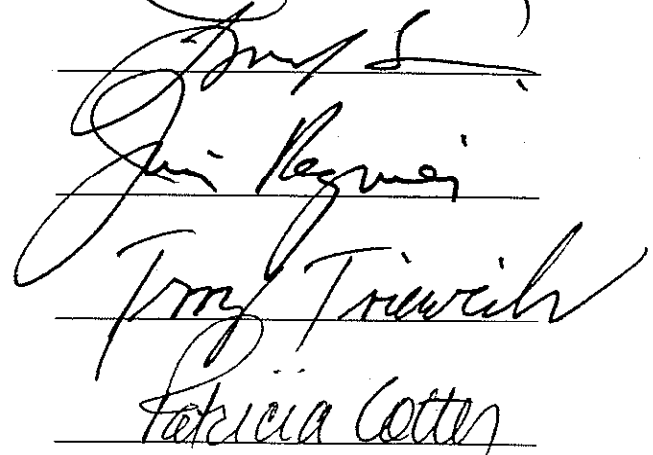 Jim Regnier
Terry Trieweiler
Patricia Cotter